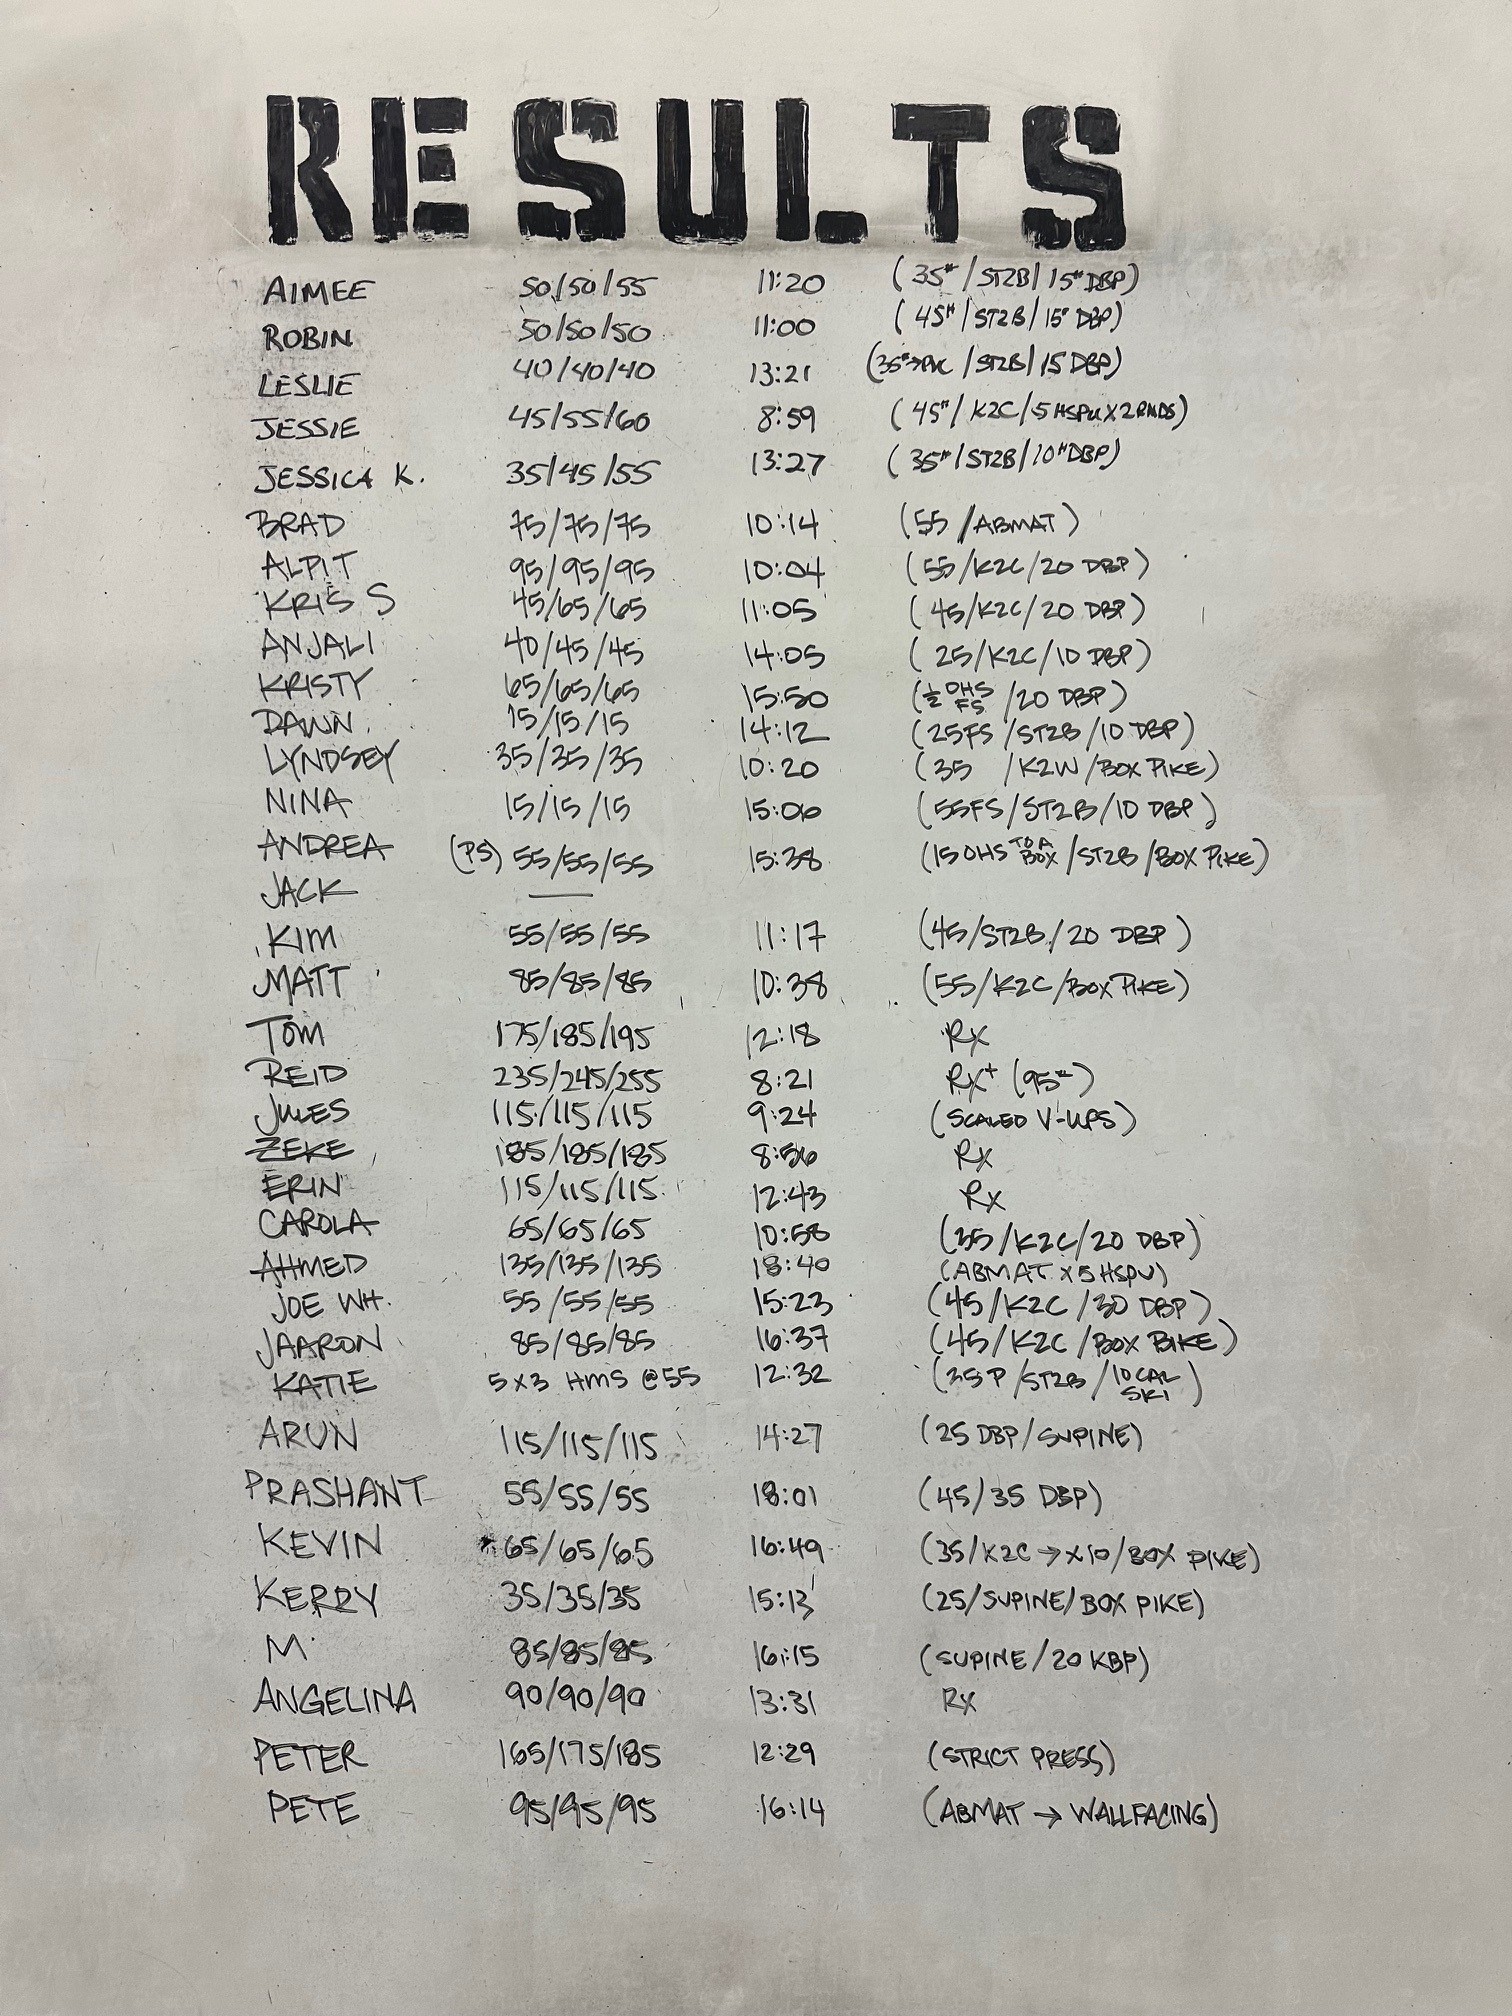 RESULTS
AIMEE 50/50/55 11:20 (35#/ST2B/15# DBP)
ROBIN 50/50/50 11:00 (45#/ST2B/15# DBP)
LESLIE 40/40/40 13:21 (35#→PVC/ST2B/15 DBP)
JESSIE 45/55/60 8:59 (45#/K2C/5 HSPU X 2 RNDS)
JESSICA K. 35/45/55 13:27 (35#/ST2B/10# DBP)
BRAD 75/75/75 10:14 (55/ABMAT)
ALPIT 95/95/95 10:04 (55/K2C/20 DBP)
KRIS S 45/65/65 11:05 (45/K2C/20 DBP)
ANJALI 40/45/45 14:05 (25/K2C/10 DBP)
KRISTY 65/65/65 15:50 (½ OHS FS/20 DBP)
DAWN 15/15/15 14:12 (25FS/ST2B/10 DBP)
LYNDSEY 35/35/35 10:20 (35 /K2W/BOX PIKE)
NINA 15/15/15 15:06 (55FS/ST2B/10 DBP)
ANDREA (PS) 55/55/55 15:38 (15 OHS TO A BOX/ST2B/BOX PIKE)
JACK —
KIM 55/55/55 11:17 (45/ST2B/20 DBP)
MATT 85/85/85 10:38 (55/K2C/BOX PIKE)
TOM 175/185/195 12:18 Rx
REID 235/245/255 8:21 Rx+ (95#)
JULES 115/115/115 9:24 (SCALED V-UPS)
ZEKE 185/185/185 8:56 Rx
ERIN 115/115/115 12:43 Rx
CAROLA 65/65/65 10:58 (35/K2C/20 DBP)
AHMED 135/135/135 18:40 (ABMAT X 5 HSPU)
JOE WH. 55/55/55 15:23 (45/K2C/30 DBP)
JAARON 85/85/85 16:37 (45/K2C/BOX BIKE)
KATIE 5X3 HMS @55 12:32 (35P/ST2B/10 CAL SKI)
ARUN 115/115/115 14:27 (25 DBP/SUPINE)
PRASHANT 55/55/55 18:01 (45/35 DBP)
KEVIN 65/65/65 16:49 (35/K2C→X10/BOX PIKE)
KERRY 35/35/35 15:13 (25/SUPINE/BOX PIKE)
M 85/85/85 16:15 (SUPINE/20 KBP)
ANGELINA 90/90/90 13:31 Rx
PETER 165/175/185 12:29 (STRICT PRESS)
PETE 95/95/95 16:14 (ABMAT → WALLFACING)